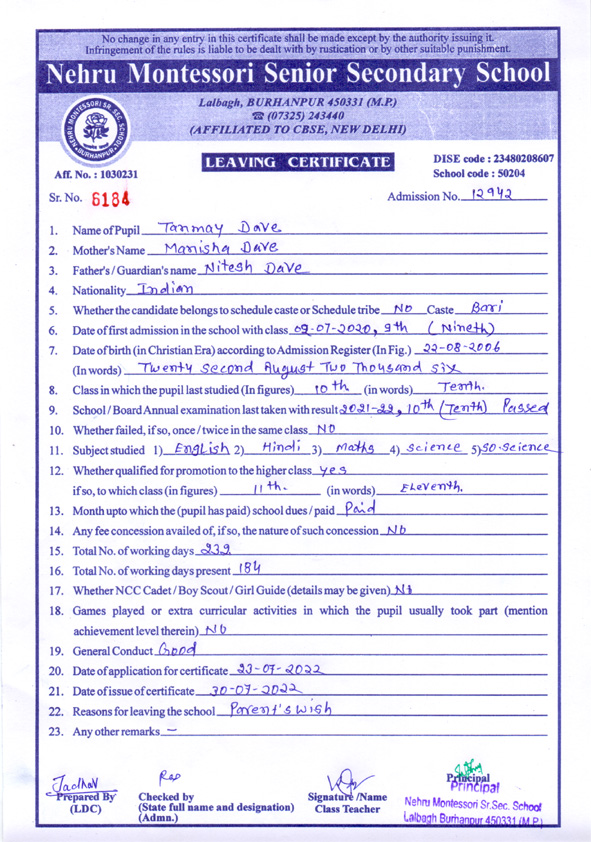 No change in any entry in this certificate shall be made except by the authority issuing it.
Infringement of the rules is liable to be dealt with by rustication or by other suitable punishment.
Nehru Montessori Senior Secondary School
Lalbagh, BURHANPUR 450331 (M.P.)
☎ (07325) 243440
(AFFILIATED TO CBSE, NEW DELHI)
NEHRU MONTESSORI SR. SEC. SCHOOL
BURHANPUR
LEAVING CERTIFICATE
DISE code : 23480208607
School code : 50204
Aff. No. : 1030231
Sr. No. 6184
Admission No. 12942
1. Name of Pupil Tanmay Dave
2. Mother's Name Manisha Dave
3. Father's / Guardian's name Nitesh Dave
4. Nationality Indian
5. Whether the candidate belongs to schedule caste or Schedule tribe No Caste Bari
6. Date of first admission in the school with class 09-07-2020, 9th (Nineth)
7. Date of birth (in Christian Era) according to Admission Register (In Fig.) 22-08-2006
(In words) Twenty second August Two Thousand six
8. Class in which the pupil last studied (In figures) 10th (in words) Tenth.
9. School / Board Annual examination last taken with result 2021-22, 10th (Tenth) Passed
10. Whether failed, if so, once / twice in the same class NO
11. Subject studied 1) English 2) Hindi 3) Maths 4) Science 5) SO.Science
12. Whether qualified for promotion to the higher class yes
if so, to which class (in figures) 11th. (in words) Eleventh.
13. Month upto which the (pupil has paid) school dues / paid Paid
14. Any fee concession availed of, if so, the nature of such concession No
15. Total No. of working days 232
16. Total No. of working days present 184
17. Whether NCC Cadet / Boy Scout / Girl Guide (details may be given) No
18. Games played or extra curricular activities in which the pupil usually took part (mention
achievement level therein) No
19. General Conduct Good
20. Date of application for certificate 23-07-2022
21. Date of issue of certificate 30-07-2022
22. Reasons for leaving the school Parent's wish
23. Any other remarks –
Jadhav
Prepared By
(LDC)
Rao
Checked by
(State full name and designation)
(Admn.)
Signature /Name
Class Teacher
Principal
Principal
Nehru Montessori Sr.Sec. School
Lalbagh Burhanpur 450331 (M.P.)